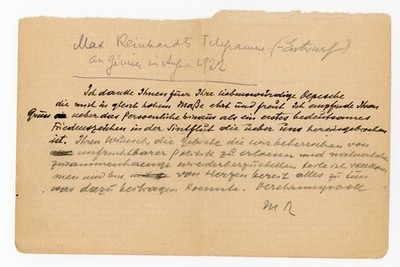 Max Reinhardts Telegramm (-Entwurf)
an Gémier im Aug 1922
Ich danke Ihnen fuer Ihre liebenswürdige Depesche
die mich in gleich hohem Maße ehrt und freut ich empfinde Ihren
Gruss ueber das Persoenliche hinaus als ein erstes bedeutsames
Friedenszeichen in der Sintflut die ueber uns hereingebrochen
ist. Ihren Wunsch die Gebiete die wir beherrschen von
unfruchtbarer Politik zu erloesen und natuerliche
Zusammenhaenge wiederherzustellen teile ich vollkom
men und bin von Herzen bereit alles zu tun
was dazu beitragen koennte. Verehrungsvoll
M R